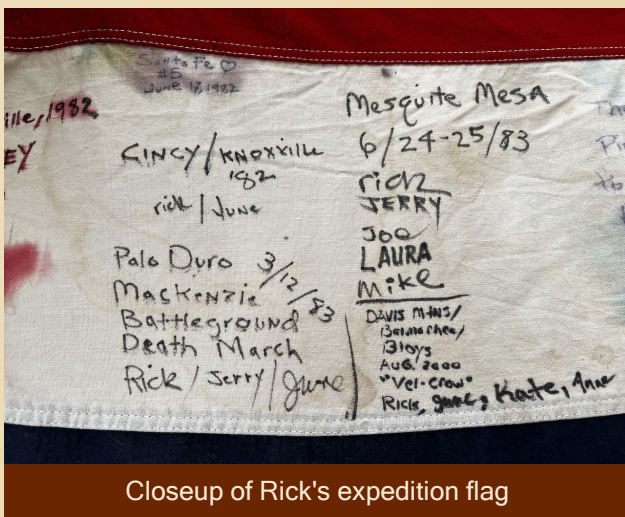 Santa Fe ♡
#5
June 18, 1982
ille, 1982
EY
CINCY/KNOXVILLE
'82
rick/June
Palo Duro 3/12/83
Mackenzie
Battleground
Death March
Rick/Jerry/June
Mesquite Mesa
6/24-25/83
rick
JERRY
Joe
LAURA
Mike
DAVIS MTNS/
Balmorhea/
Bloys
AUG. 2000
"Vel-Crow"
Rick, June, Kate, Anne
Closeup of Rick's expedition flag